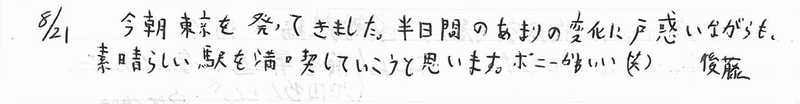 8/21 今朝東京を発ってきました。半日間のあまりの変化に戸惑いながらも、
素晴らしい駅を満喫していこうと思います。ポニーがかわいい(笑) 後藤